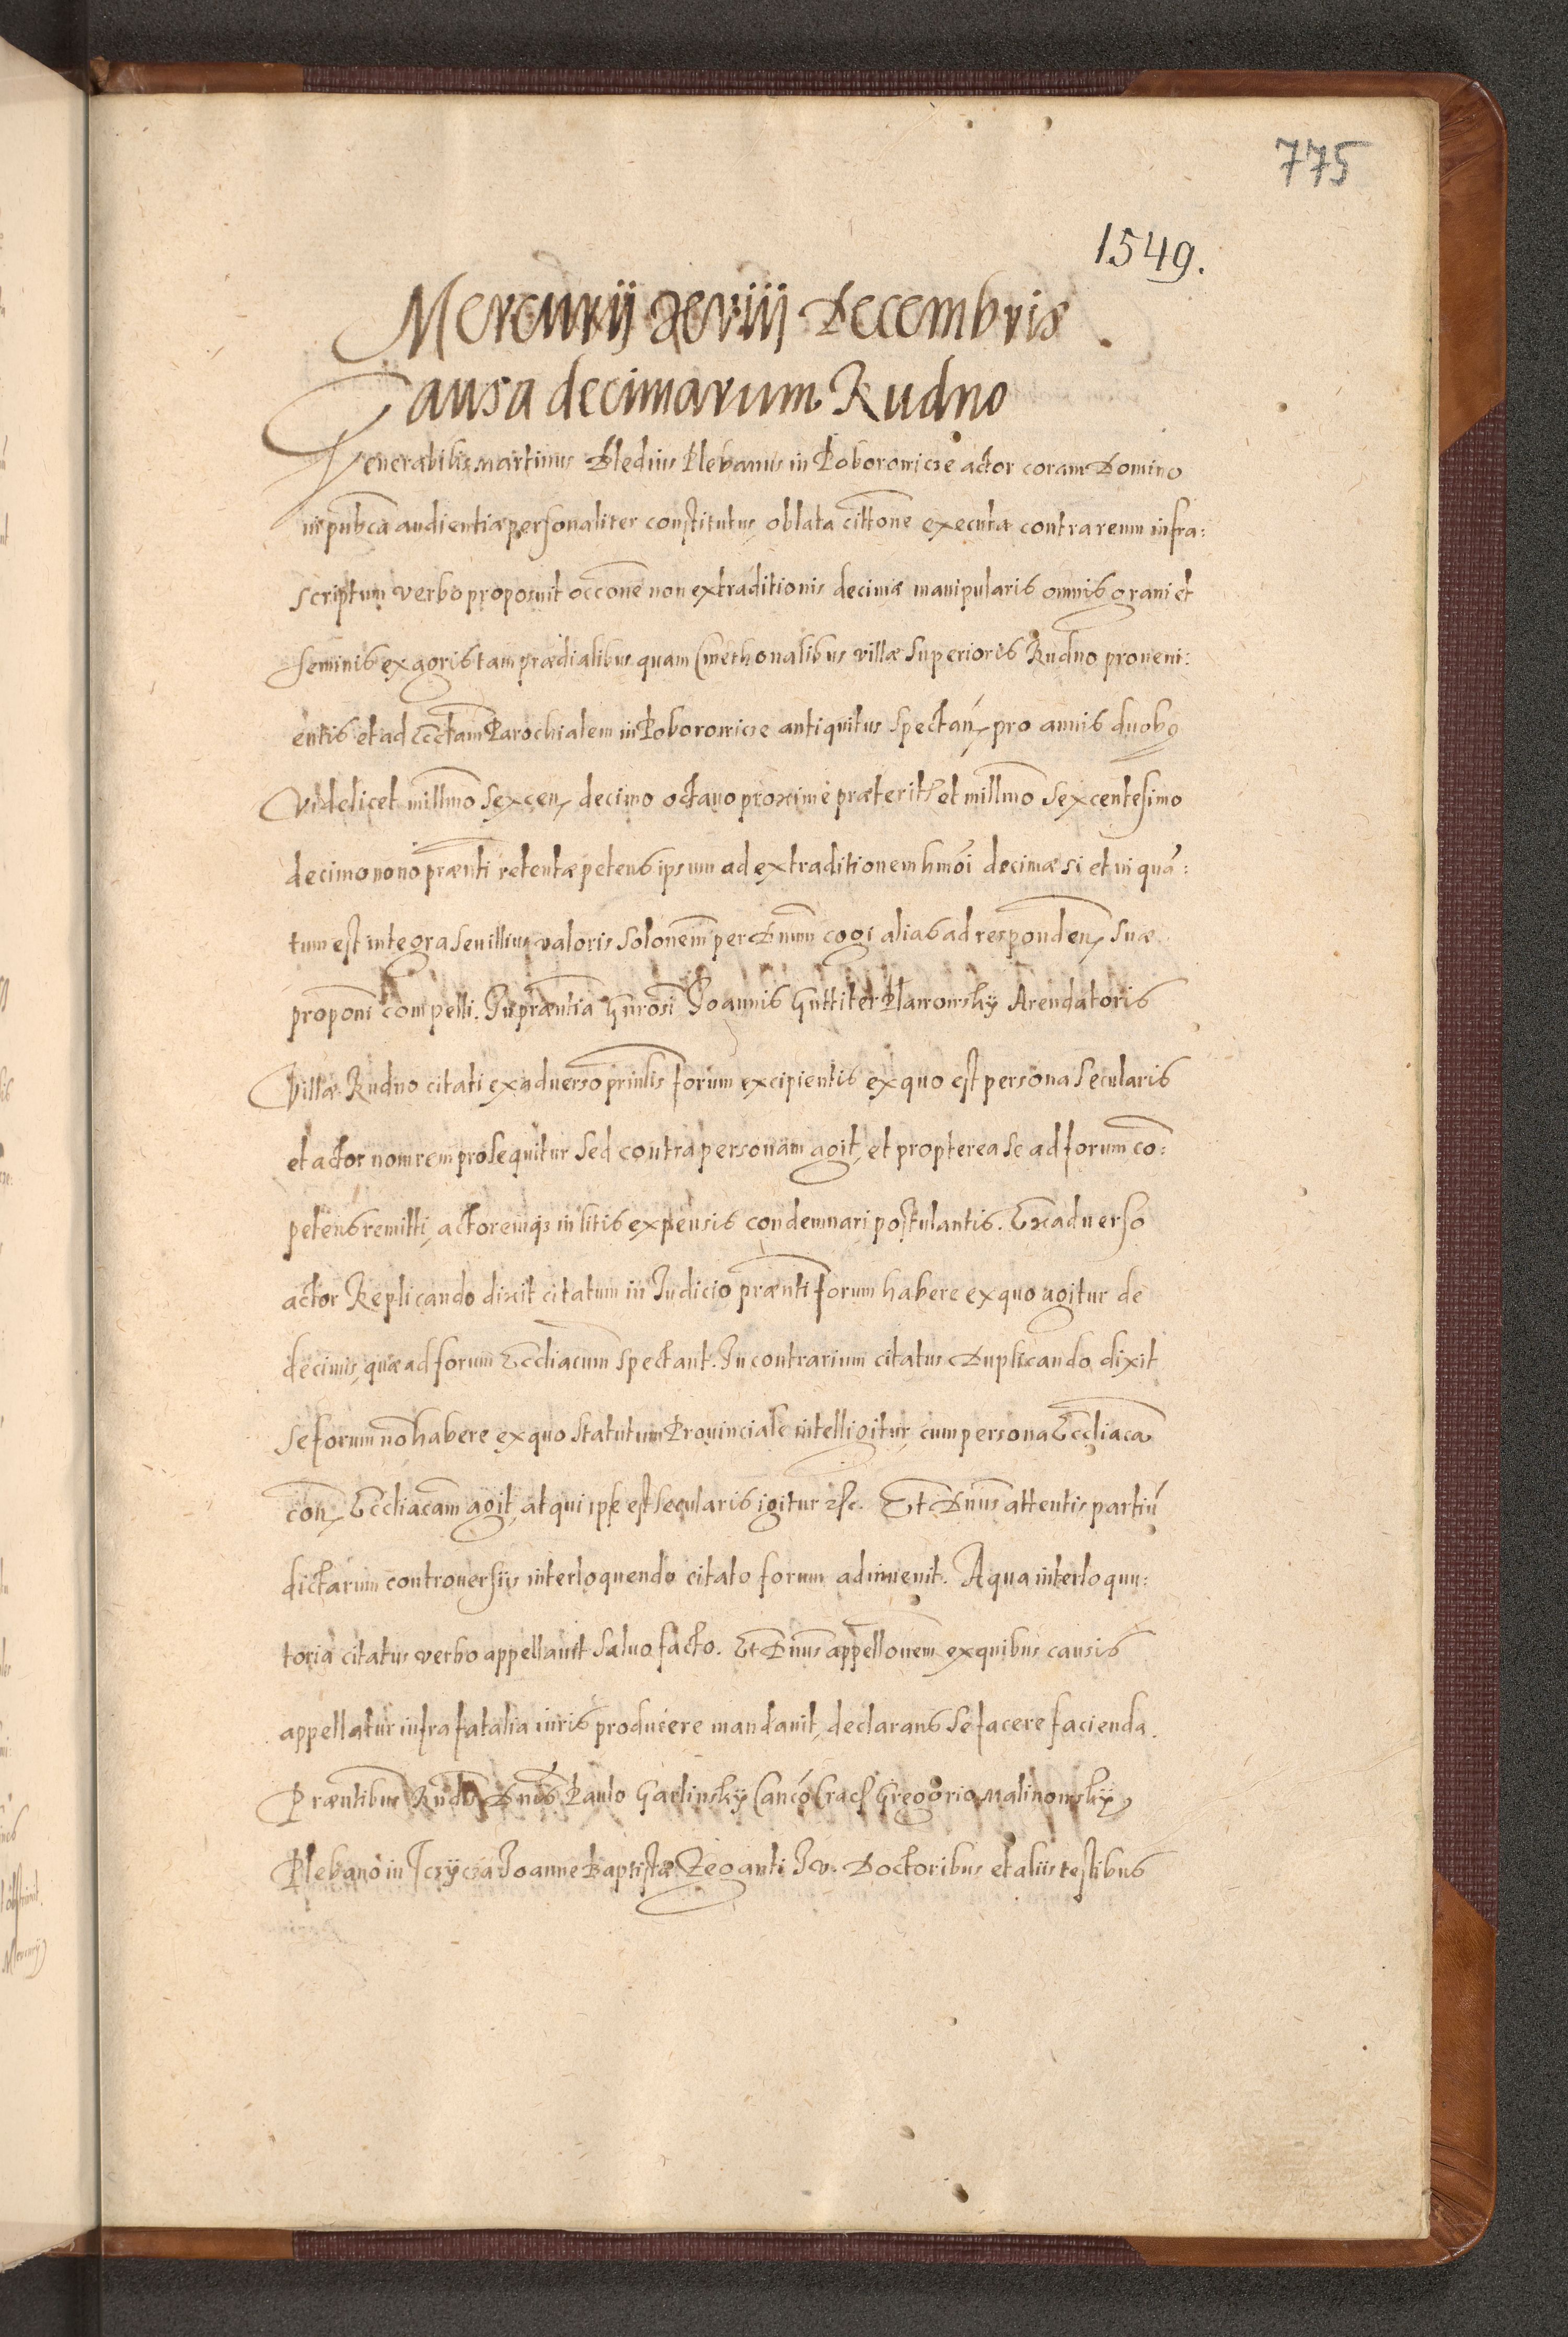 775
1549.
Mercurij xviij Decembris
Causa decimarum Rudno
Venerabilis Martinus Bledius Plebanus in Poborowicze actor coram Domino
in publca audientia personaliter constitutus, oblata cittone executa contra reum infra:
scriptum verbo proposuit occone non extraditionis decimæ manipularis omnis grani et
seminis ex agris tam prædialibus quam Cmethonalibus villæ Superioris Rudno proveni:
entis et ad Ecctam Parochialem in Poborowicze antiquitus spectan, pro annis duobq
Videlicet millmo Sexcen, decimo octauo proxime præterit et millmo Sexcentesimo
decimo nono prænti retentæ petens ipsum ad extraditionem hmoi decimæ si et in quã:
tum est integra seu illius valoris solonem per Dnum cogi alias ad responden, suæ
proponi compelli. In præntia Gnrosi Joannis Guttiter Plawowsky Arendatoris
Villæ Rudno citati ex aduerso prinlis forum excipientis ex quo est persona secularis
et actor non rem prosequitur sed contra personam agit, et propterea se ad forum co:
petens remitti, actoremqz in litis expensis condemnari postulantis. Ex aduerso
actor Replicando dixit citatum in Judicio prænti forum habere ex quo agitur de
decimis, quæ ad forum Eccliacum spectant. In contrarium citatus Duplicando dixit
se forum nõ habere ex quo statutum Prouinciale intelligitur, cum persona Eccliaca
con, Eccliacam agit, at qui ipse est secularis igitur etc. Et Dnus attentis partiũ
dictarum controuersiis interloquendo citato forum adinuenit. A qua interloquu:
toria citatus verbo appellauit saluo facto. Et Dnus appellonem ex quibus causis
appellatur infra fatalia iuris producere mandauit, declarans se facere facienda.
Præntibus Rndis Dnis Paulo Garlinsky Canco Crac Gregorio Malinowsky
Plebano in Joanne Baptista Zeganti J. v. Doctoribus et aliis testibus